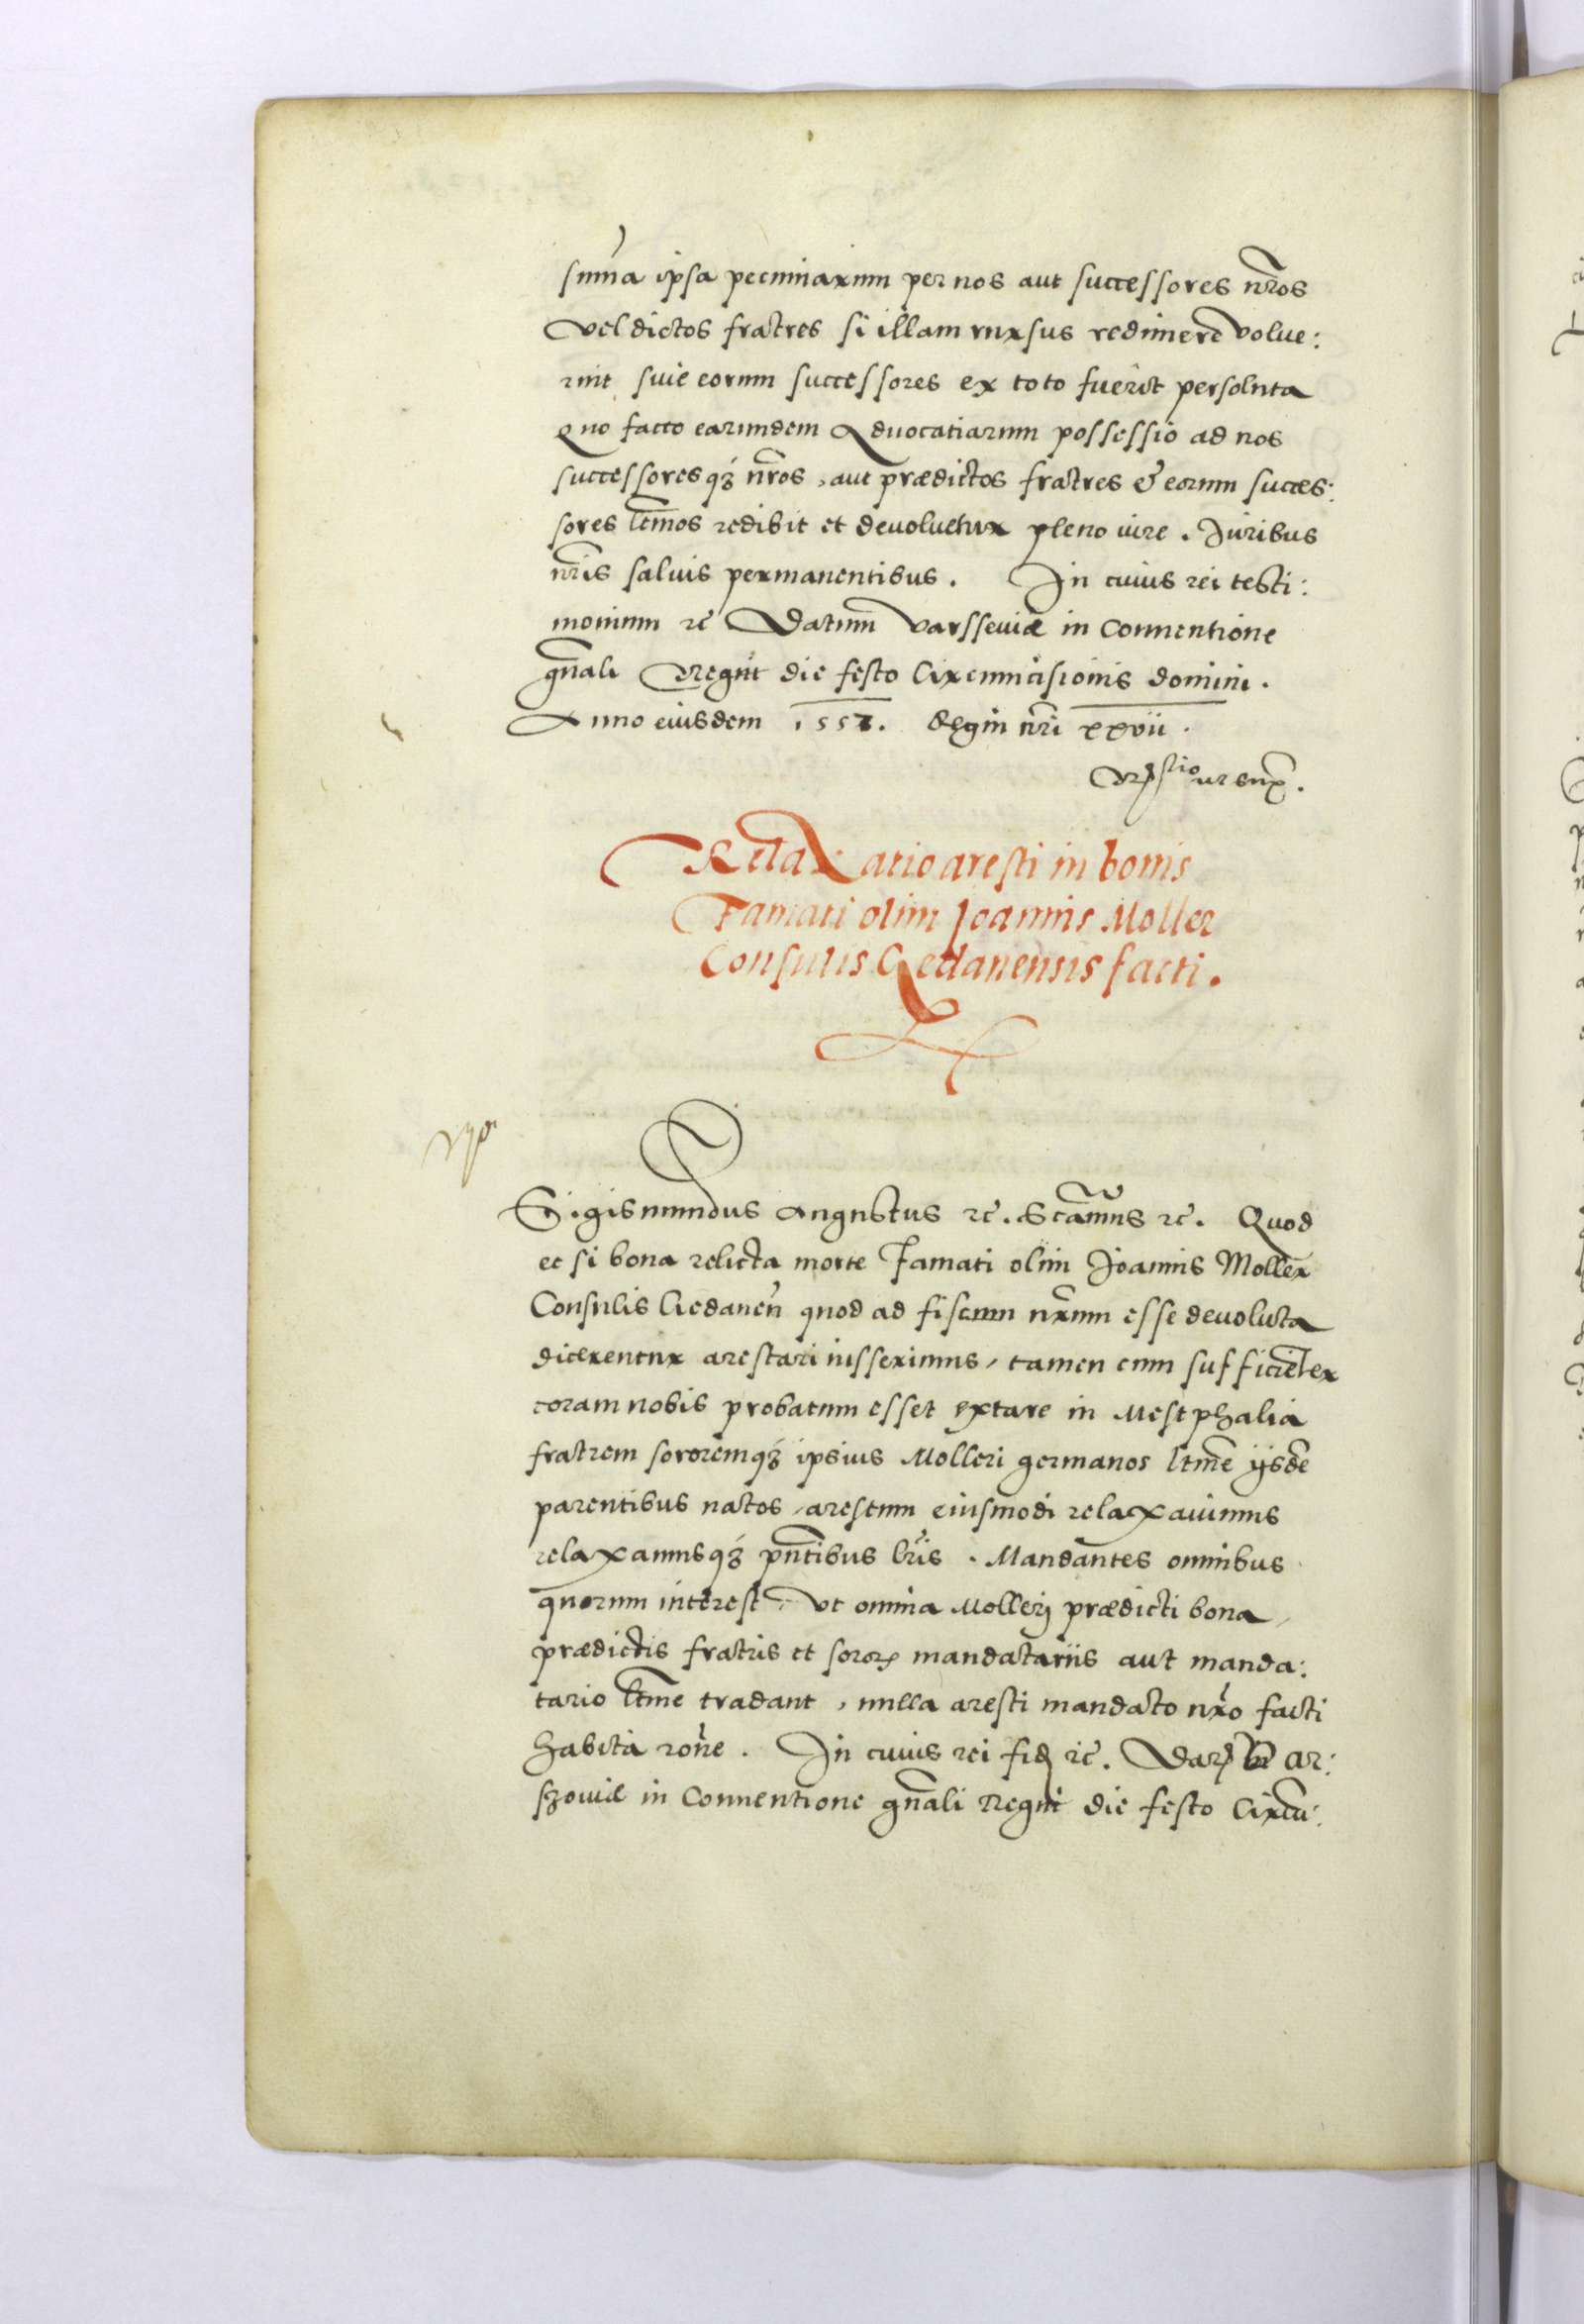 sum̃a ipsa pecuniarum per nos aut successores nr̃os
vel dictos fratres si illam rursus redimere volue:
rint, siue eorum successores ex toto fuerit persoluta
Quo facto earundem Aduocatiarum possessio ad nos
successoresqȝ nr̃os, aut prædictos fratres & eorum succes:
sores ltm̃os redibit et deuoluetur pleno iure. Juribus
nr̃is saluis permanentibus. In cuius rei testi:
monium ꝛc̃ Datum Varsseuiæ in Conuentione
gn̄ali Regni die festo Circumcisionis domini.
Anno eiusdem 1557. Regni nr̃i xxvii.
Relaxatio aresti in bonis
Famati olim Joannis Moller
Consulis Gedanensis facti.
Sigismundus Augustus ꝛc̃. Scãmus ꝛc̃. Quod
et si bona relicta morte Famati olim Joannis Moller
Consulis Gedaneñ quod ad fiscum nr̃um esse deuoluta
dicerentur arestari iusserimus, tamen cum sufficiẽter
coram nobis probatum esset extare in Westphalia
fratrem sororemqȝ ipsius Molleri germanos ltm̃e ijsdẽ
parentibus natos, arestum eiusmodi relaxauimus
relaxamusqȝ pn̄tibus lr̃is. Mandantes omnibus
quorum interest, vt omnia Mollerj prædicti bona,
prædictis fratris et soror̃ mandatariis aut manda:
tario ltm̃e tradant, nulla aresti mandato nr̃o facti
habita ron̄e. In cuius rei fid̃ ꝛc̃. Dat̃ War:
szouiæ in Conuentione gn̄ali Regni die festo Circũ: